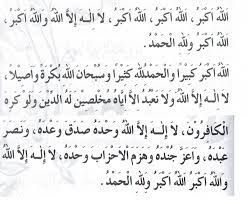 اَللهُ اَكْبَرُ ، اَللهُ اَكْبَرُ ، اَللهُ اَكْبَرُ ، لَا اِلٰـهَ اِلَّا اللهُ وَاللهُ اَكْبَرُ ،
اَللهُ اَكْبَرُ وَلِلّٰهِ الْحَمْدُ.
اَللهُ اَكْبَرُ كَبِيرًا وَالْحَمْدُ لِلّٰهِ كَثِيرًا وَسُبْحَانَ اللهِ بُكْرَةً وَاَصِيلًا ،
لَا اِلٰـهَ اِلَّا اللهُ وَلَا نَعْبُدُ اِلَّا اِيَّاهُ مُخْلِصِينَ لَهُ الدِّيْنَ وَلَوْ كَرِهَ
الْكَافِرُونَ ، لَا اِلٰـهَ اِلَّا اللهُ وَحْدَهُ صَدَقَ وَعْدَهُ ، وَنَصَرَ
عَبْدَهُ ، وَاَعَزَّ جُنْدَهُ وَهَزَمَ الْاَحْزَابَ وَحْدَهُ ، لَا اِلٰـهَ اِلَّا اللهُ
وَاللهُ اَكْبَرُ اَللهُ اَكْبَرُ وَلِلّٰهِ الْحَمْدُ.